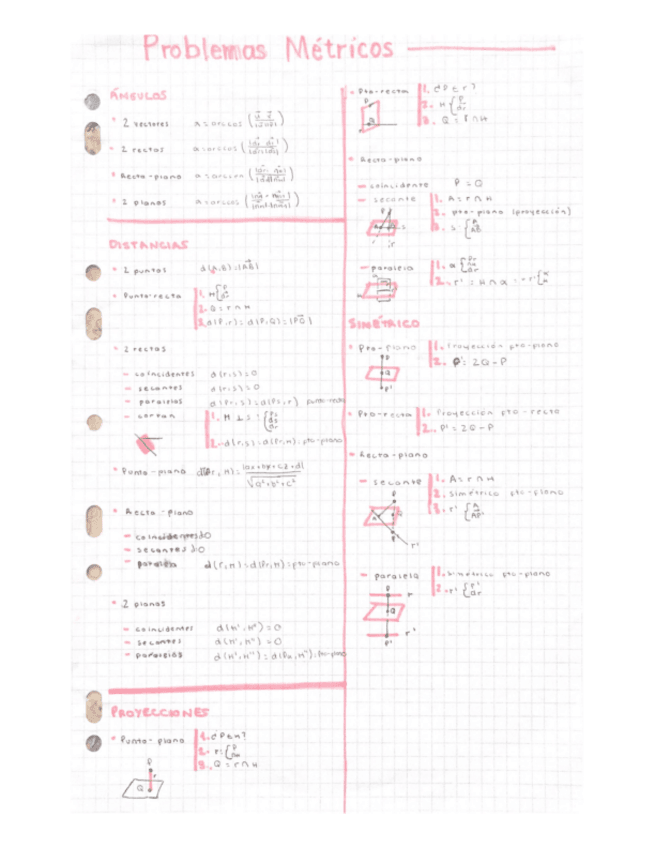 Problemas Métricos
ÁNGULOS
2 vectores α=arccos
2 rectas α=arccos
Recta-plano α=arcsen
2 planos α=arccos
DISTANCIAS
2 puntos d(A,B)=|AB|
Punto-recta
2. Q=r∩π
3. d(P,r)=d(P,Q)=|PQ|
2 rectas
- coincidentes d(r,s)=0
- secantes d(r,s)=0
- paralelas d(r,s)=d(Ps,r) punto-recta
2. d(r,s)=d(Pr,π)=pto-plano
Punto-plano
√a²+b²+c²
Recta-plano
- coincidentes d=0
- secantes d=0
- paralela d(r,π)=d(Pr,π)=pto-plano
2 planos
- coincidentes d(π',π'')=0
- secantes d(π',π'')=0
- paralelos
PROYECCIONES
Punto-plano 1. ¿P∈π?
3. Q=r∩π
P
r
Q
Pto-recta 1. ¿P∈r?
3. Q=r∩π
Recta-plano
- coincidente P=Q
- secante 1. A=r∩π
2. pto-plano (proyección)
- paralela
SIMÉTRICO
Pto-plano 1. Proyección pto-plano
2. P'=2Q-P
P
Q
P'
Pto-recta 1. Proyección pto-recta
2. P'=2Q-P
Recta-plano
- secante 1. A=r∩π
2. simétrico pto-plano
3. r'
- paralela 1. simétrico pto-plano
2. r'
P r
Q
r'
P'